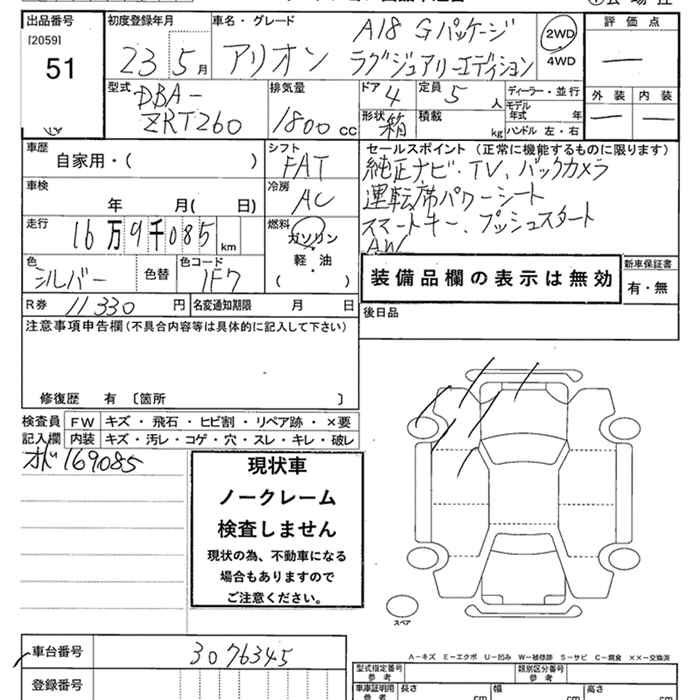 出品番号 初度登録年月 車名・グレード 評価点
[2059] 51
23年5月 アリオン A18 Gパッケージ ラグジュアリーエディション
2WD 4WD
型式 DBA-ZRT260
排気量 1800 CC
ドア 4 定員 5 人
形状 箱 積載 kg
ディーラー・並行
モデル年式 年
ハンドル 左・右
外装 内装
車歴 自家用・( )
シフト FAT
セールスポイント (正常に機能するものに限ります)
純正ナビ・TV、バックカメラ
運転席パワーシート
スマートキー、プッシュスタート
AW
車検 年 月( 日)
冷房 AC
走行 16万9千085 km
燃料 ガソリン・軽油・( )
色 シルバー 色替 色コード 1F7
装備品欄の表示は無効
新車保証書 有・無
R券 11330 円 名変通知期限 月 日
後日品
注意事項申告欄(不具合内容等は具体的に記入して下さい)
修復歴 有〔箇所 〕
検査員記入欄 FW キズ・飛石・ヒビ割・リペア跡・×要
内装 キズ・汚レ・コゲ・穴・スレ・キレ・破レ
オド169085
現状車
ノークレーム
検査しません
現状の為、不動車になる
場合もありますので
ご注意ください。
スペア
A−キズ E−エクボ U−凹み W−補修跡 S−サビ C−腐食 ××−交換済
車台番号 3076345
登録番号
型式指定番号 参考 類別区分番号 参考
車庫証明用 参考 長さ cm 幅 cm 高さ cm